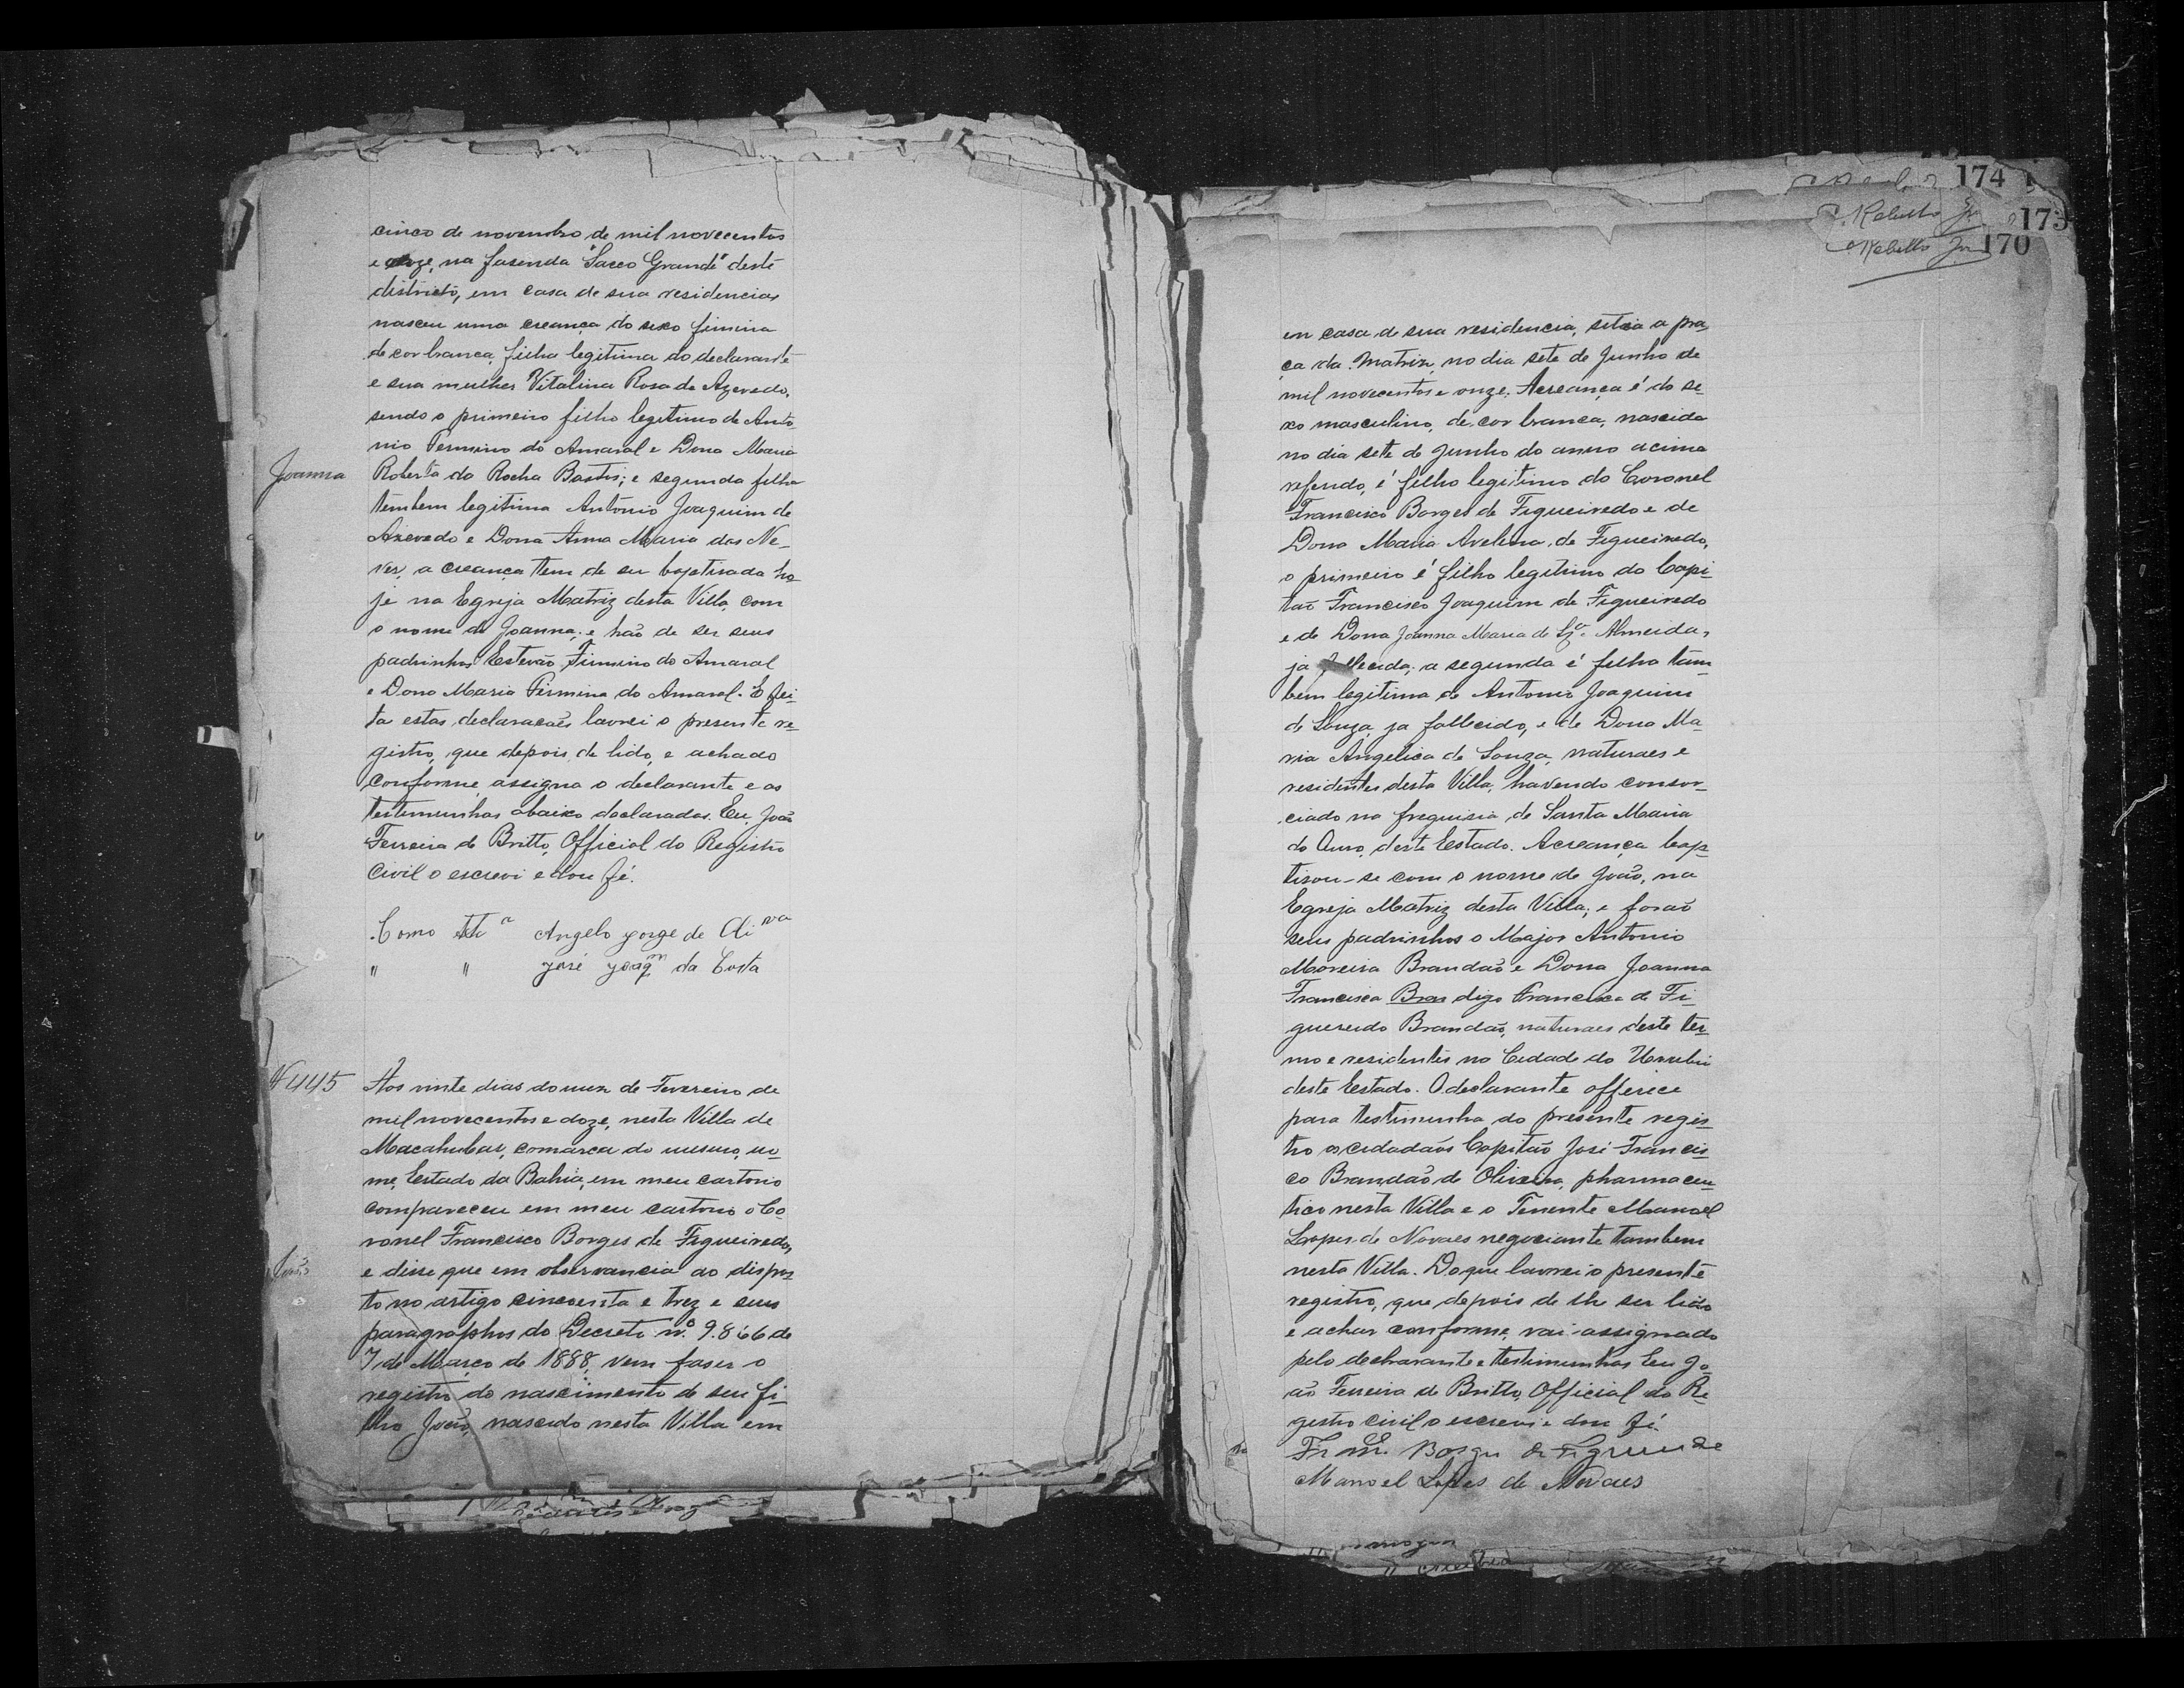 cinco de novembro de mil novecentos
e onze, na fasenda "Sacco Grande" deste
districto, em casa de sua residencia,
nasceu uma creança do sexo fiminino
de cor branca, filha legitima do declarante
e sua mulher Vitalina Rosa de Azevedo,
sendo o primeiro filho legitimo de Anto-
nio Fermino do Amaral e Dona Maria
Joanna
Roberta da Rocha Bastos; e segunda filha
tembem legitima Antonio Joaquim de
Azevedo e Dona Anna Maria das Ne-
ves, a creança tem de ser baptisada ho-
je na Egreja Matriz desta Villa, com
o nome de Joanna; e hão de ser seus
padrinhos Estevão Firmino do Amaral
e Dona Maria Firmina do Amaral. E fei-
ta estas declarações lavrei o presente re-
gistro, que depois de lido, e achado
conforme assigna o declarante e as
testimunhas abaixo declaradas. Eu, João
Ferreira de Britto, Official do Registro
Civil o escrevi e dou fé.
Como ttha Angelo Jorge de Olivra
" " José Joaqm da Costa
N 445
Aos vinte dias do mez de Fevereiro de
mil novecentos e doze, nesta Villa de
Macahubas, comarca do mesmo no-
me, Estado da Bahia, em meu cartorio
compareceu em meu cartorio o Co-
ronel Francisco Borges de Figueiredo,
João
e disse que em observancia ao dispos-
to no artigo cincoenta e trez e seus
paragraphos do Decreto nº 9.866 de
7 de Março de 1888, vem faser o
registro do nascimento de seu fi-
lho João, nascido nesta Villa em
174
Rebello Jr. 173
Rebello Jr 170
em casa de sua residencia, sita a pra-
ça da Matriz, no dia sete de Junho de
mil novecentos e onze. A creança é do se-
xo masculino, de cor branca, nascida
no dia sete de Junho do anno acima
referido, é filho legitimo do Coronel
Francisco Borges de Figueiredo e de
Dona Maria Avelina de Figueiredo,
o primeiro é filho legitimo do Capi-
tão Francisco Joaquim de Figueiredo
e de Dona Joanna Maria de Almeida,
ja fallecida; a segunda é filha tam-
bem legitima de Antonio Joaquim
de Souza, ja fallecido, e de Dona Ma-
ria Angelica de Souza, naturaes e
residentes desta Villa, havendo consor-
ciado na freguisia de Santa Maria
do Ouro, deste Estado. A creança bap-
tisou-se com o nome de João, na
Egreja Matriz desta Villa; e forão
seus padrinhos o Major Antonio
Moreira Brandão e Dona Joanna
Francisca Bran digo Francisca de Fi-
gueredo Brandão, naturaes deste ter-
mo e residentes na Cidade do Urubú
deste Estado. O declarante offerece
para testimunha do presente regis-
tro os cidadãos Capitão José Francis-
co Brandão de Oliveira, pharmaceu-
tico nesta Villa e o Tenente Manoel
Lopes de Novaes negociante tambem
nesta Villa. Do que lavrei o presente
registro, que depois de lhe ser lido
e achar conforme, vai assignado
pelo declarante e testimunhas. Eu Jo-
ão Ferreira de Britto, Official do Re-
gistro civil o escrevi e dou fé.
Borges de Figueiredo
Manoel Lopes de Novaes